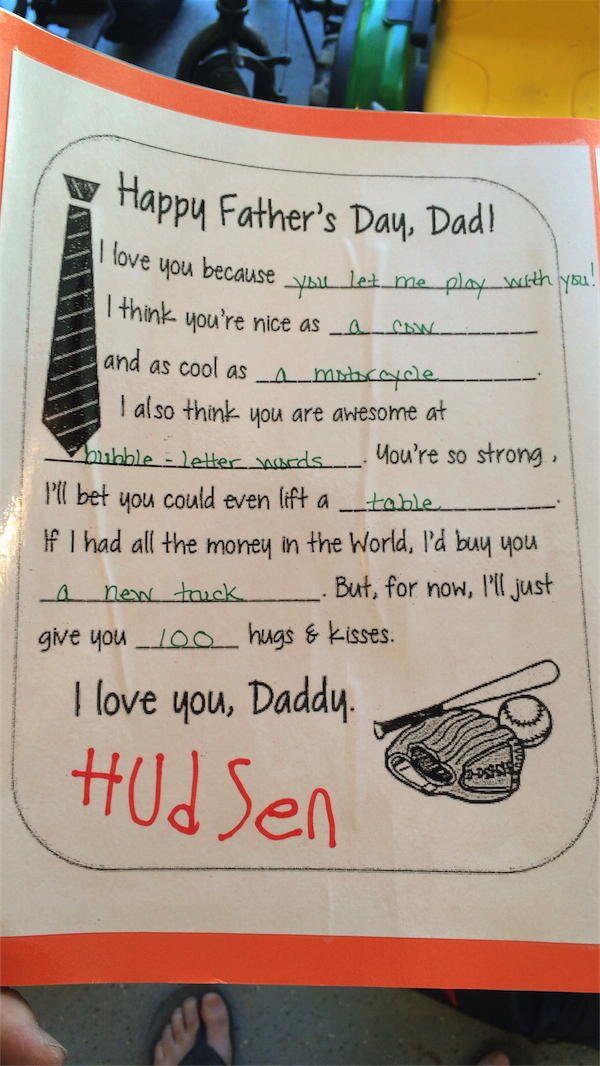 Happy Father's Day, Dad!
I love you because you let me play with you!
I think you're nice as a cow
and as cool as a motorcycle.
I also think you are awesome at
bubble-letter words. You're so strong,
I'll bet you could even lift a table.
If I had all the money in the World, I'd buy you
a new truck. But, for now, I'll just
give you 100 hugs & kisses.
I love you, Daddy.
HUdSen